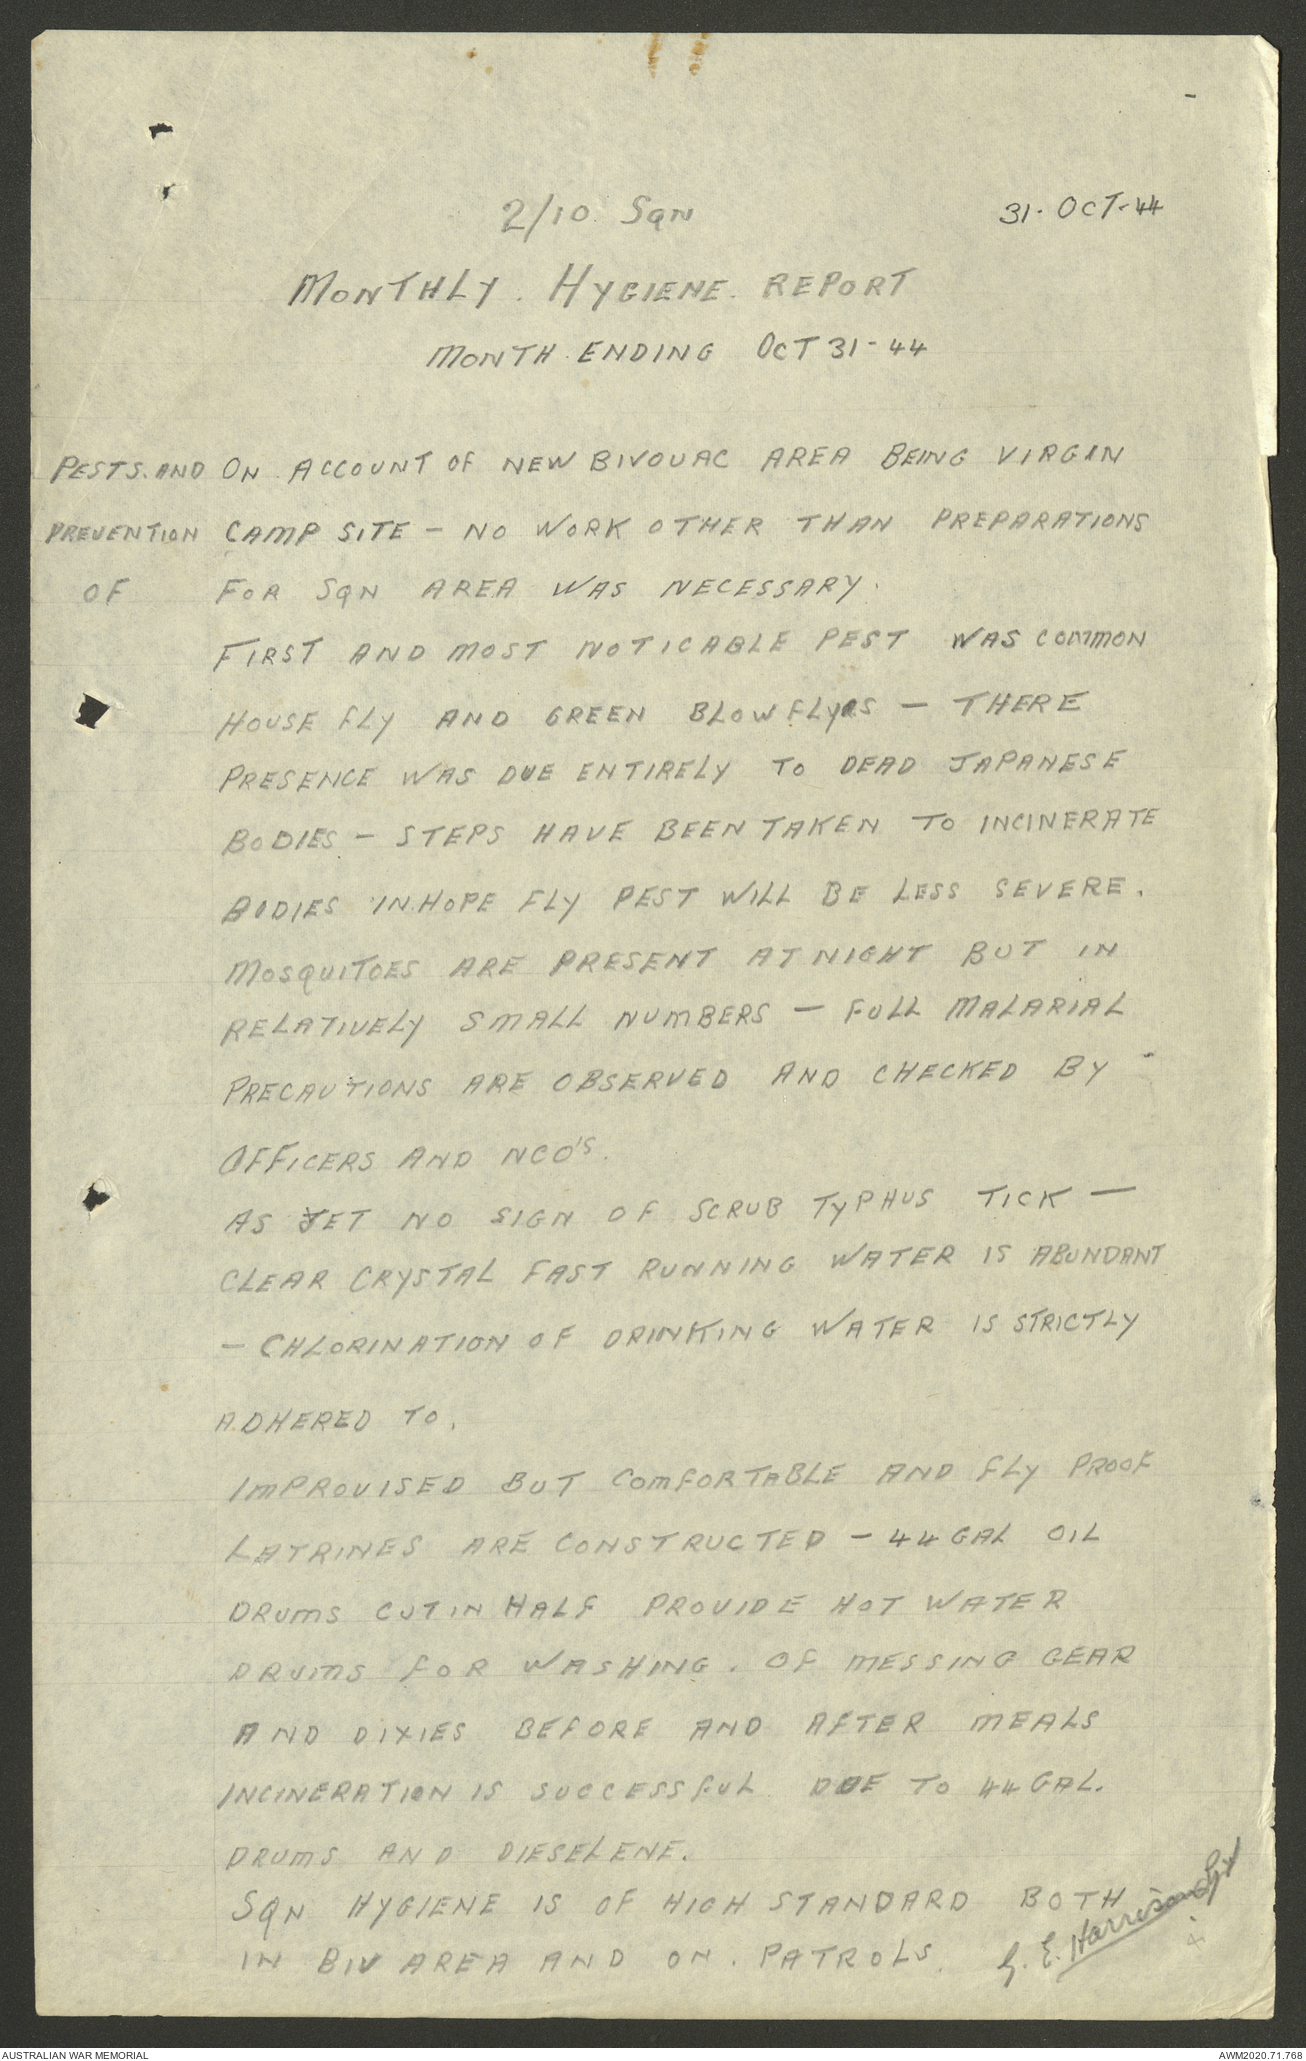 2/10 Sqn
31-OCT-44
MONTHLY. HYGIENE. REPORT
MONTH ENDING OCT 31-44
PESTS. AND ON ACCOUNT OF NEW BIVOUAC AREA BEING VIRGIN
PREVENTION CAMP SITE - NO WORK OTHER THAN PREPARATIONS
OF FOR SQN AREA WAS NECESSARY.
FIRST AND MOST NOTICABLE PEST WAS COMMON
HOUSE FLY AND GREEN BLOW FLYES - THERE
PRESENCE WAS DUE ENTIRELY TO DEAD JAPANESE
BODIES - STEPS HAVE BEEN TAKEN TO INCINERATE
BODIES IN HOPE FLY PEST WILL BE LESS SEVERE.
MOSQUITOES ARE PRESENT AT NIGHT BUT IN
RELATIVELY SMALL NUMBERS - FULL MALARIAL
PRECAUTIONS ARE OBSERVED AND CHECKED BY -
OFFICERS AND NCO'S.
AS YET NO SIGN OF SCRUB TYPHUS TICK -
CLEAR CRYSTAL FAST RUNNING WATER IS ABUNDANT
- CHLORINATION OF DRINKING WATER IS STRICTLY
ADHERED TO.
IMPROVISED BUT COMFORTABLE AND FLY PROOF
LATRINES ARE CONSTRUCTED - 44 GAL OIL
DRUMS CUT IN HALF PROVIDE HOT WATER
DRUMS FOR WASHING. OF MESSING GEAR
AND DIXIES BEFORE AND AFTER MEALS
INCINERATION IS SUCCESSFUL DUE TO 44 GAL.
DRUMS AND DIESELENE.
SQN HYGIENE IS OF HIGH STANDARD BOTH
IN BIV AREA AND ON. PATROLS.
G. E. Harrison
AUSTRALIAN WAR MEMORIAL
AWM2020.71.768